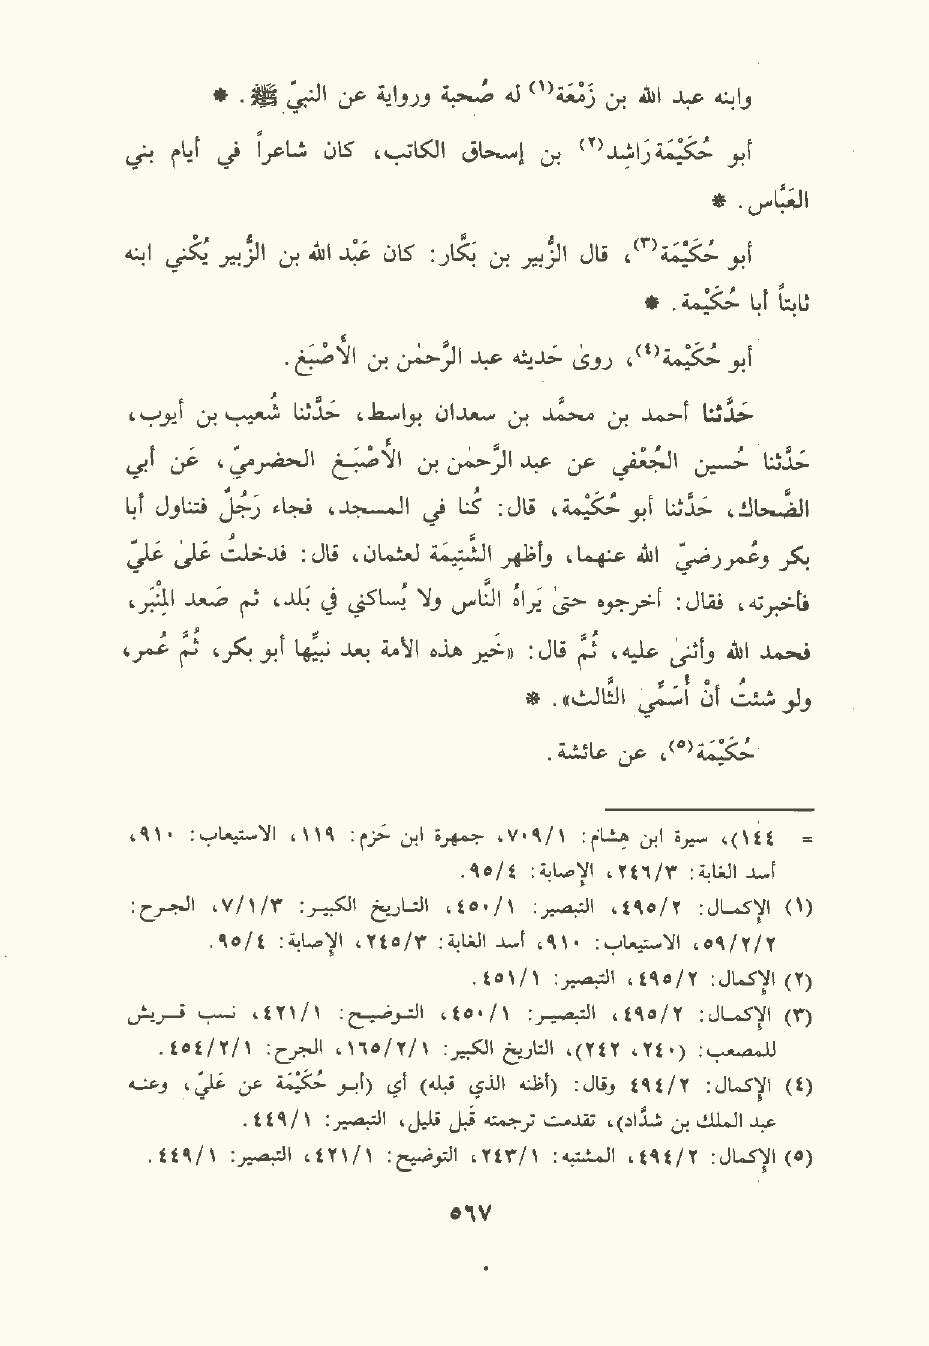 وابنه عبد الله بن زَمْعَة(١) له صُحبة ورواية عن النبيّ ﷺ . *
أبو حُكَيْمَة رَاشِد(٢) بن إسحاق الكاتب، كان شاعراً في أيام بني
العَبَّاس . *
أبو حُكَيْمَة(٣)، قال الزُّبير بن بَكَّار: كان عَبْد الله بن الزُّبير يُكْني ابنه
ثابتاً أبا حُكَيْمة . *
أبو حُكَيْمَة(٤)، روىٰ حَديثه عبد الرَّحمٰن بن الأَصْبَغ .
حَدَّثنا أحمد بن محمَّد بن سعدان بواسط، حَدَّثنا شُعيب بن أيوب،
حَدَّثنا حُسين الجُعْفي عن عبد الرَّحمٰن بن الأَصْبَـغ الحضرميّ، عَن أبي
الضَّحاك، حَدَّثنا أبو حُكَيْمَة، قال: كُنا في المسـجد، فجاء رَجُلٌ فتناول أبا
بكر وعُمر رضيّ الله عنهما، وأظهر الشَّتِيمَة لعثمان، قال: فدخلتُ علىٰ عَليّ
فأخبرته، فقال: أخرجوه حتىٰ يَراهُ النَّاس ولا يُساكنّي في بَلد، ثم صعد المِنْبَر،
فحمد الله وأثنىٰ عليه، ثُمَّ قال: «خَير هذه الأمة بعد نبيّها أبو بكر، ثُمَّ عُمر،
ولو شئتُ أنْ أُسَمِّي الثَّالث» . *
حُكَيْمَة(٥)، عن عائشة .
= ١٤٤)، سيرة ابن هِشام: ٧٠٩/١، جمهرة ابن حَزم: ١١٩، الاستيعاب: ٩١٠،
أسد الغابة: ٢٤٦/٣، الإصابة: ٩٥/٤.
(١) الإكمال: ٤٩٥/٢، التبصير: ٤٥٠/١، التـاريخ الكبيـر: ٧/١/٣، الجـرح:
٥٩/٢/٢، الاستيعاب: ٩١٠، أسد الغابة: ٢٤٥/٣، الإصابة: ٩٥/٤.
(٢) الإكمال: ٤٩٥/٢، التبصير: ٤٥١/١.
(٣) الإكمال: ٤٩٥/٢، التبصيـر: ٤٥٠/١، التـوضيـح: ٤٢١/١، نسـب قـريش
للمصعب: (٢٤٠، ٢٤٢)، التاريخ الكبير: ١٦٥/٢/١، الجرح: ٤٥٤/٢/١.
(٤) الإكمال: ٤٩٤/٢ وقال: (أظنه الذي قبله) أي (أبـو حُكَيْمَة عن عَليّ، وعنـه
عبد الملك بن شدَّاد)، تقدمت ترجمته قَبل قليل، التبصير: ٤٤٩/١.
(٥) الإكمال: ٤٩٤/٢، المشتبه: ٢٤٣/١، التوضيح: ٤٢١/١، التبصير: ٤٤٩/١.
٥٦٧